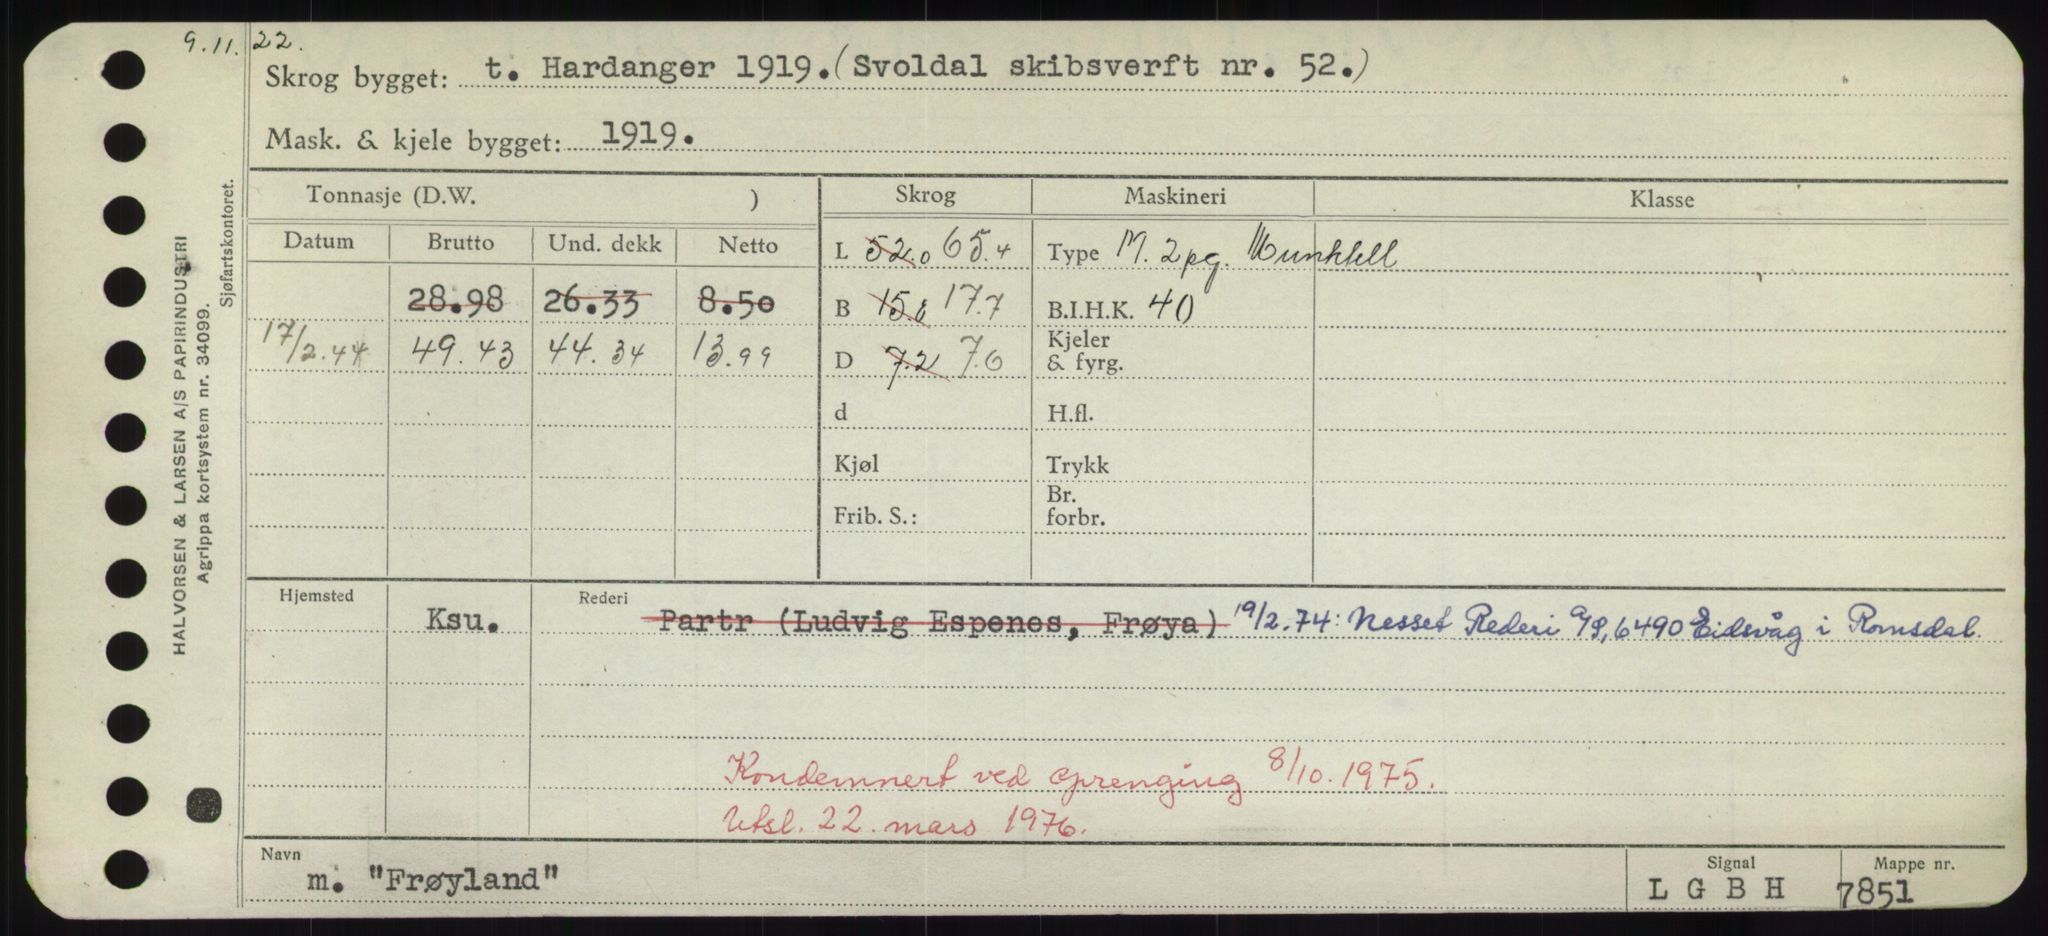 9.11.22.
Skrog bygget: t. Hardanger 1919. (Svoldal skibsverft nr. 52.)
Mask. & kjele bygget: 1919.
Tonnasje (D.W. ) Skrog Maskineri Klasse
Datum Brutto Und. dekk Netto L 52.0 65.4 Type M. 2pg. Munktell
28.98 26.33 8.50 B 15.6 17.7 B.I.H.K. 40
17/2.44 49.43 44.34 13.99 D 7.2 7.6 Kjeler & fyrg.
d H.fl.
Kjøl Trykk
Frib. S.: Br. forbr.
Hjemsted Ksu. Rederi Partr (Ludvig Espenes, Frøya) 19/2.74: Nesset Rederi A/S, 6490 Eidsvåg i Romsdal.
Kondemnert ved sprenging 8/10.1975.
Utsl. 22. mars 1976.
Navn Signal Mappe nr.
m. "Frøyland" L G B H 7851
HALVORSEN & LARSEN A/S PAPIRINDUSTRI
Agrippa kortsystem nr. 34099.
Sjøfartskontoret.